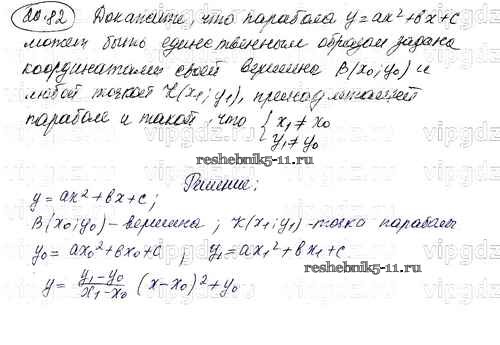 20.82 Докажите, что парабола y=ax²+bx+c
может быть единственным образом задана
координатами своей вершины B(x₀; y₀) и
любой точкой K(x₁; y₁), принадлежащей
параболе и такой, что { x₁ ≠ x₀
y₁ ≠ y₀
reshebnik5-11.ru
Решение:
y = ax² + bx + c;
B(x₀; y₀) - вершина; K(x₁; y₁) - точка параболы
y₀ = ax₀² + bx₀ + c; y₁ = ax₁² + bx₁ + c.
reshebnik5-11.ru
y = (y₁ - y₀)/(x₁ - x₀) (x - x₀)² + y₀